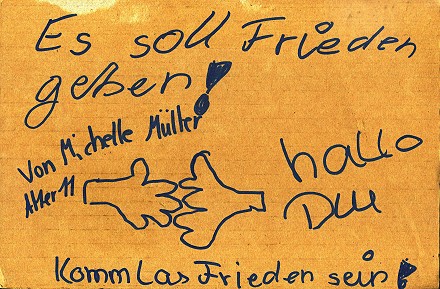 Es soll Frieden
geben!
Von Michelle Müller
Alter 11
hallo
Du
Komm Las Frieden sein!